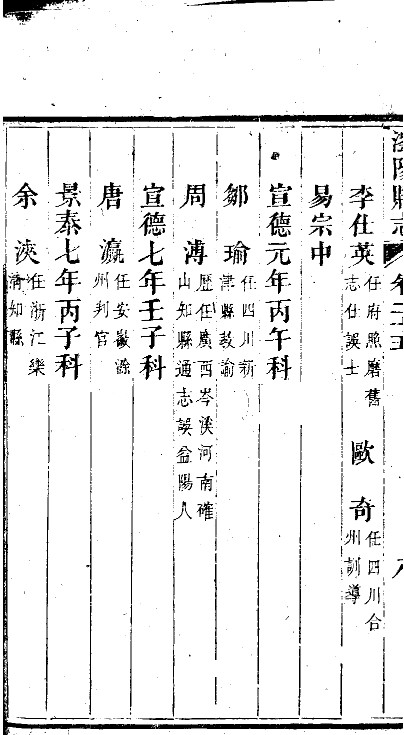 瀏陽縣志 卷二十五 八
李仕英 任府照磨舊志仕誤士 歐奇 任四川合州訓導
易宗中
宣德元年丙午科
鄒瑜 任四川新津縣教諭
周溥 歷任廣西岑溪河南確山知縣通志誤益陽人
宣德七年壬子科
唐瀛 任安徽滁州判官
景泰七年丙子科
余浹 任浙江樂清知縣